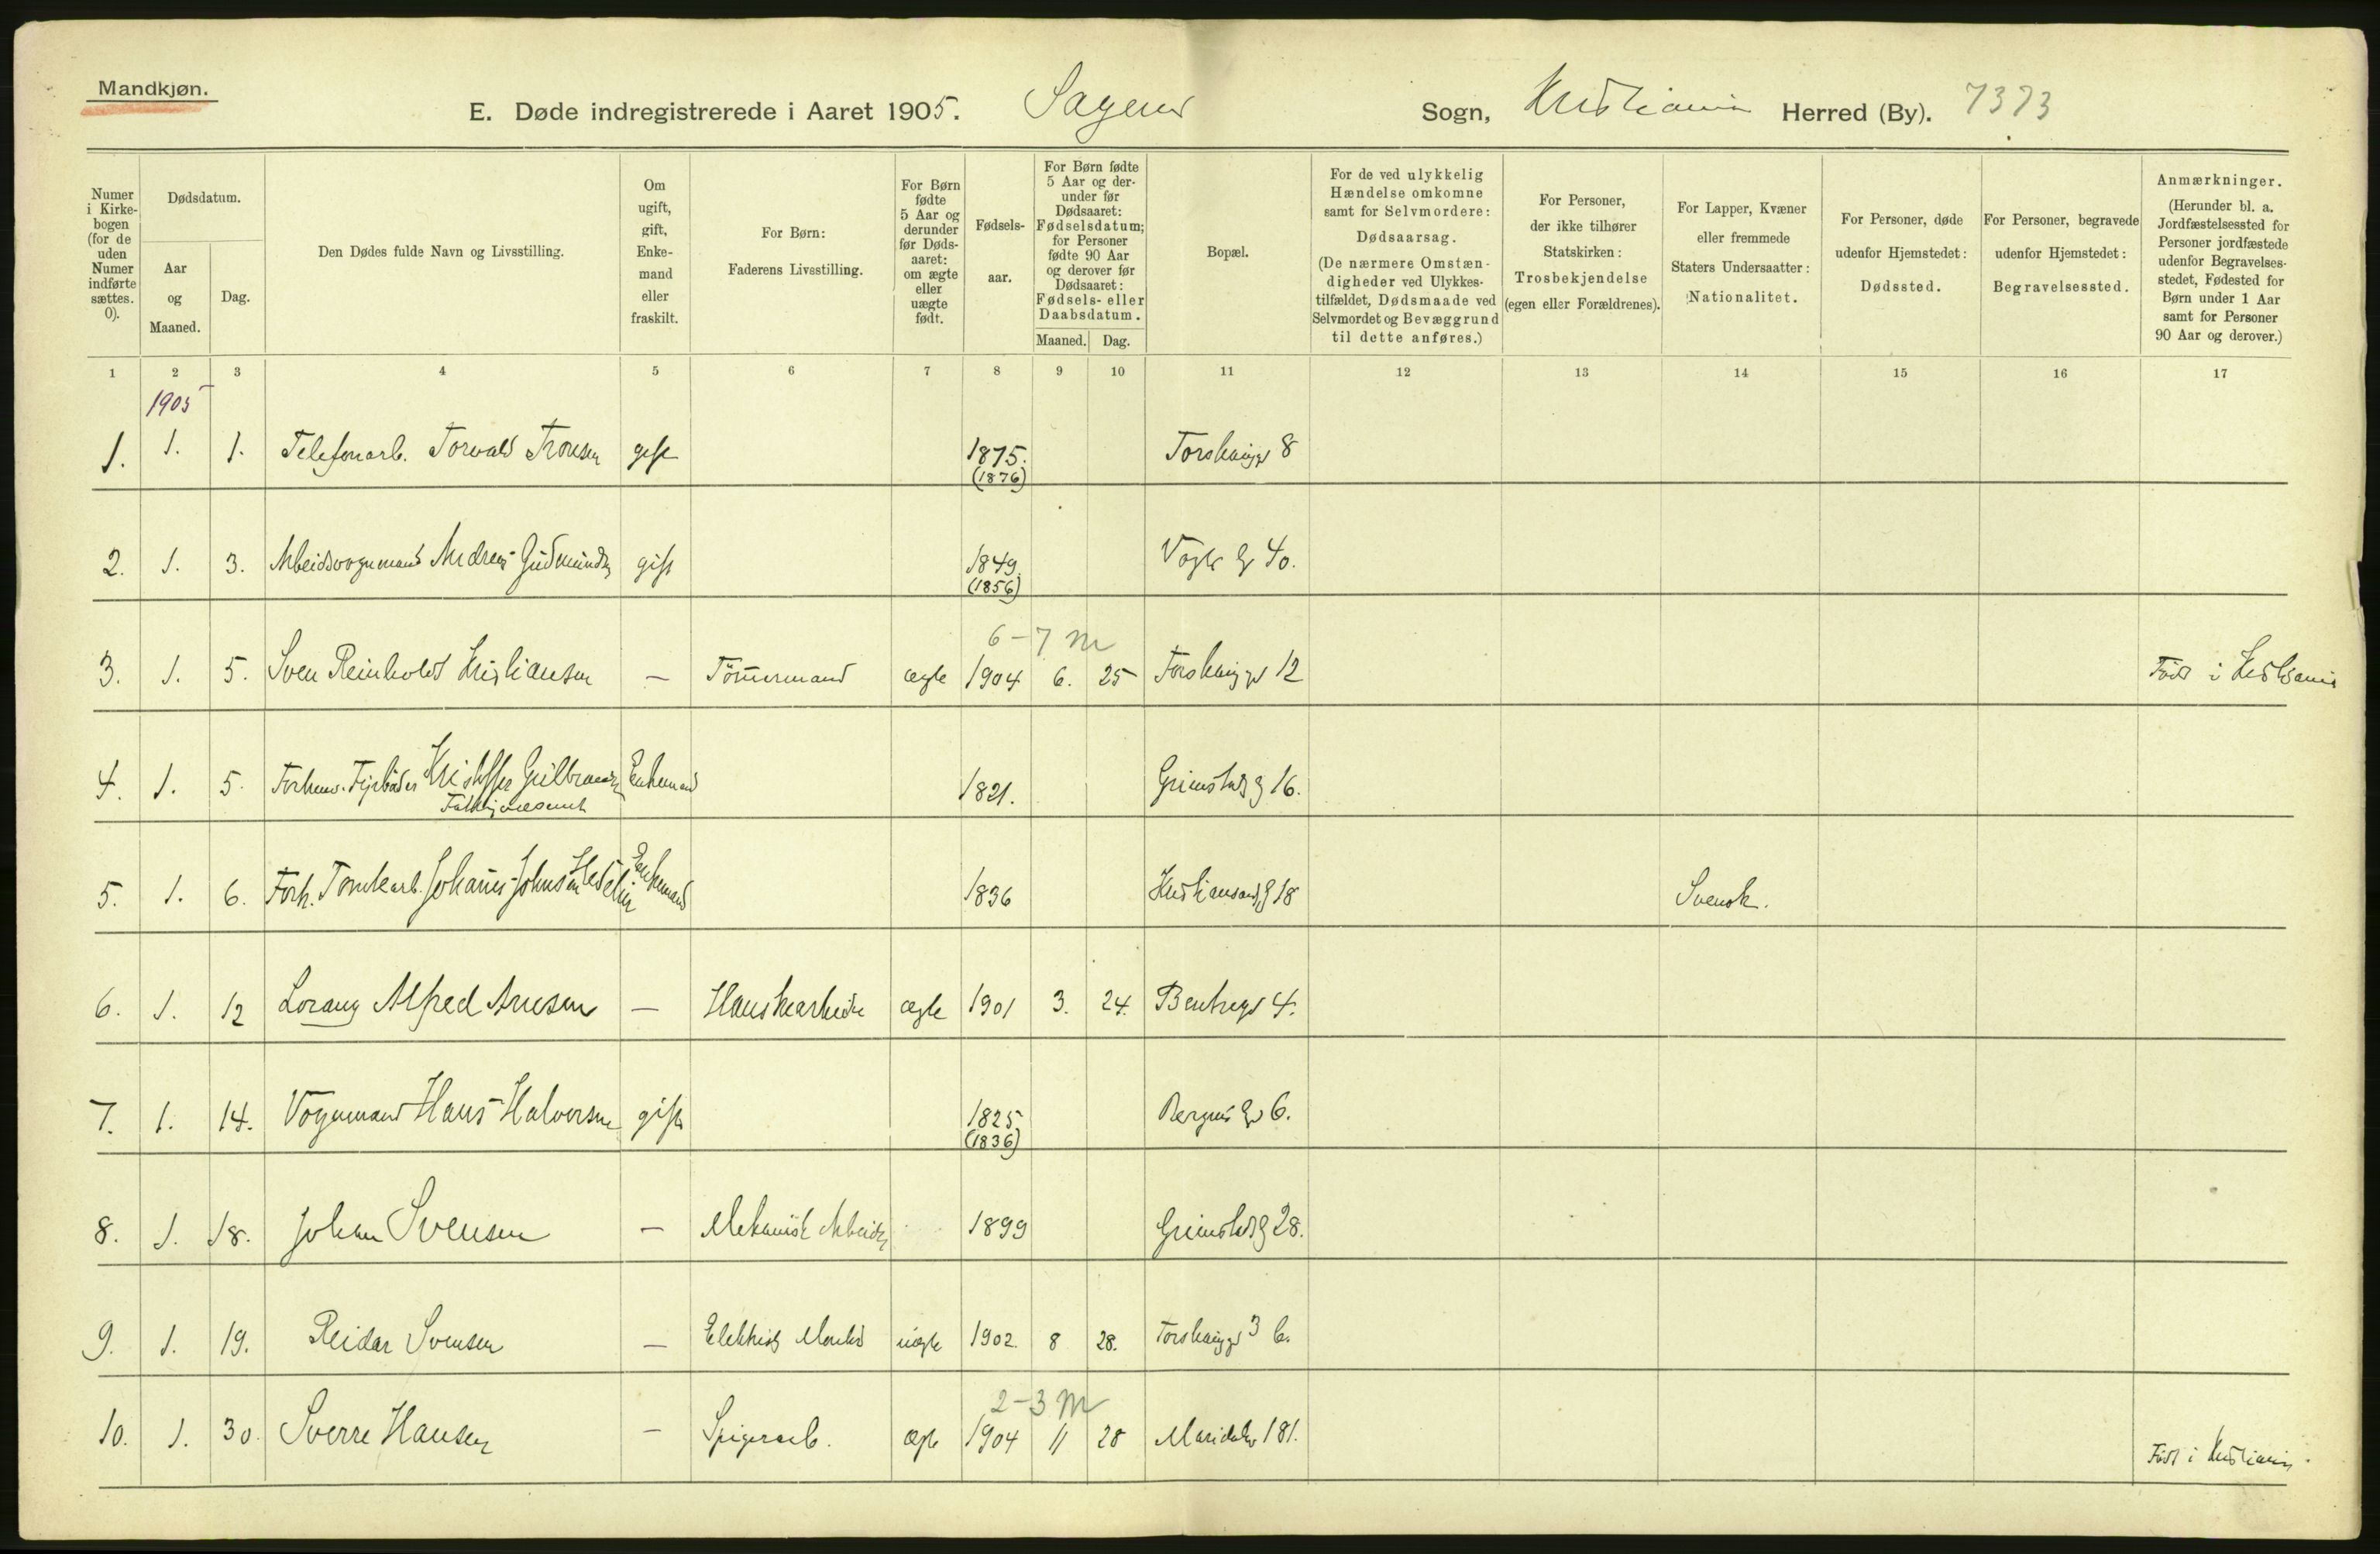 Mandkjøn.
E. Døde indregistrerede i Aaret 1905. Sagene Sogn, Kristiania Herred (By). 7373
Numer i Kirkebogen (for de uden Numer indførte sættes. 0).
Dødsdatum.
Aar og Maaned.
Dag.
Den Dødes fulde Navn og Livsstilling.
Om ugift, gift, Enkemand eller fraskilt.
For Børn: Faderens Livsstilling.
For Børn fødte 5 Aar og derunder før Dødsaaret: om ægte eller uægte født.
Fødselsaar.
For Børn fødte 5 Aar og derunder før Dødsaaret: Fødselsdatum; for Personer fødte 90 Aar og derover før Dødsaaret: Fødsels- eller Daabsdatum.
Maaned. Dag.
Bopæl.
For de ved ulykkelig Hændelse omkomne samt for Selvmordere: Dødsaarsag. (De nærmere Omstændigheder ved Ulykkestilfældet, Dødsmaade ved Selvmordet og Bevæggrund til dette anføres.)
For Personer, der ikke tilhører Statskirken: Trosbekjendelse (egen eller Forældrenes).
For Lapper, Kvæner eller fremmede Staters Undersaatter: Nationalitet.
For Personer, døde udenfor Hjemstedet: Dødssted.
For Personer, begravede udenfor Hjemstedet: Begravelsessted.
Anmærkninger. (Herunder bl. a. Jordfæstelsessted for Personer jordfæstede udenfor Begravelsesstedet, Fødested for Børn under 1 Aar samt for Personer 90 Aar og derover.)
1 2 3 4 5 6 7 8 9 10 11 12 13 14 15 16 17
1905
1. 1. 1. Telefonarb. Torvald Tronsen gift 1875. Torshaugg 8
(1876)
2. 1. 3. Arbeidsvognmand Andreas Gudmunds gift 1849. Vogts g 40.
(1856)
6-7 M
3. 1. 5. Sven Reinholdt Kristiansen — Tömmermand ægte 1904 6. 25 Torshaugg 12 Född i Kristiania
4. 1. 5. Forhenv. Fyrbøder Kristoffer Gulbrandsen Enkemand 1821. Grimstadg 16.
5. 1. 6. Forh. Tomtearb. Johannes Johnsen Enkemand 1836 Kristiansandsg 18 Svensk.
6. 1. 12 Lorang Alfred Arnesen — Hanskearbeider ægte 1901 3. 24. Bentsegd 4.
7. 1. 14. Vognmand Hans Halvorsen gift 1825. Bergensgd 6.
(1836)
8. 1. 18. Johan Svensen — Mekanisk Arbeider 1899 Grimstadg 28.
9. 1. 19. Reidar Svensen — Elektrisk Montør uægte 1902. 8 28. Torshauggd 3 b.
2-3 M
10. 1. 30. Sverre Hansen — Spigerarb. ægte 1904 11 28 Maridalsv 181. Född i Kristiania